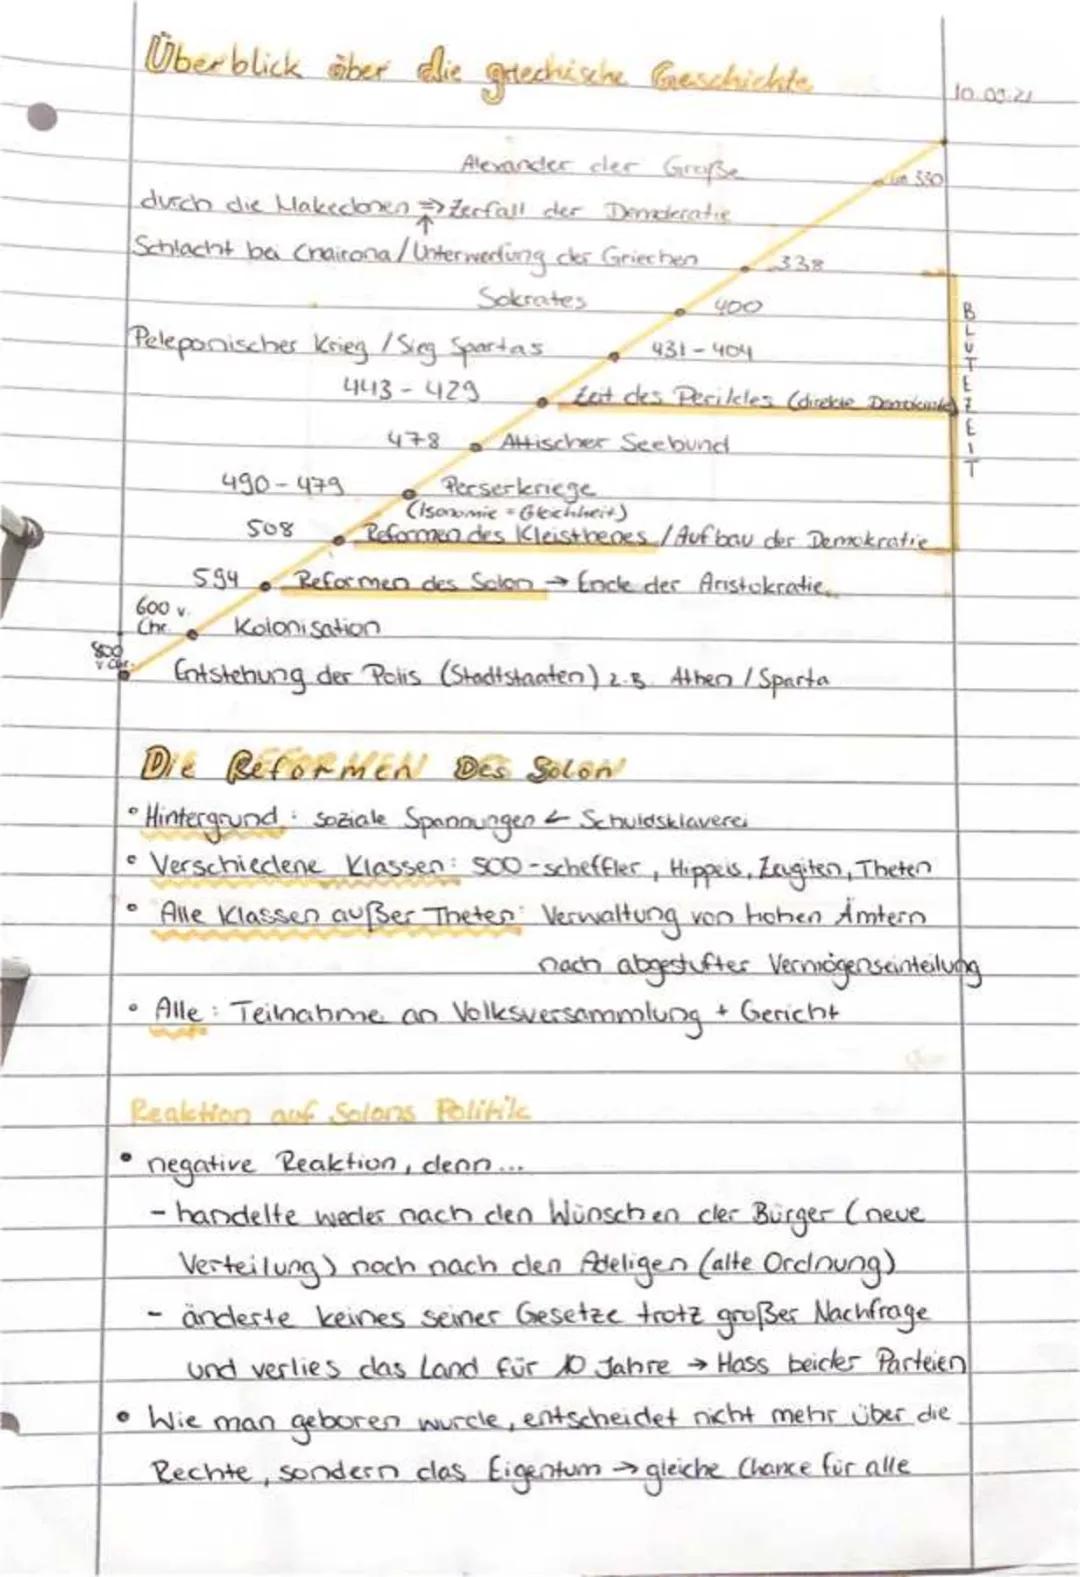 Überblick über die griechische Geschichte
10.09.21
Alexander der Große
um 330
durch die Makedonen ⇒ Zerfall der Demokratie
↑
Schlacht bei Chairona / Unterwerfung der Griechen
338
Sokrates
400
Peleponischer Krieg / Sieg Spartas
431 - 404
443 - 429
Zeit des Perikles (direkte Demokratie)
478
Attischer Seebund
490 - 479
Perserkriege
(Isonomie = Gleichheit)
508
Reformen des Kleisthenes / Aufbau der Demokratie
594
Reformen des Solon → Ende der Aristokratie
600 v.
Chr.
Kolonisation
800
v Chr.
Entstehung der Polis (Stadtstaaten) z.B. Athen / Sparta
BLÜTEZEIT
Die Reformen Des Solon
• Hintergrund: soziale Spannungen ← Schuldsklaverei
• Verschiedene Klassen: 500-scheffler, Hippeis, Zeugiten, Theten
• Alle Klassen außer Theten: Verwaltung von hohen Ämtern
nach abgestufter Vermögenseinteilung
• Alle: Teilnahme an Volksversammlung + Gericht
Reaktion auf Solons Politik
• negative Reaktion, denn...
- handelte weder nach den Wünschen der Bürger (neue
Verteilung) noch nach den Adeligen (alte Ordnung)
- änderte keines seiner Gesetze trotz großer Nachfrage
und verlies das Land für 10 Jahre → Hass beider Parteien
• Wie man geboren wurde, entscheidet nicht mehr über die
Rechte, sondern das Eigentum → gleiche Chance für alle